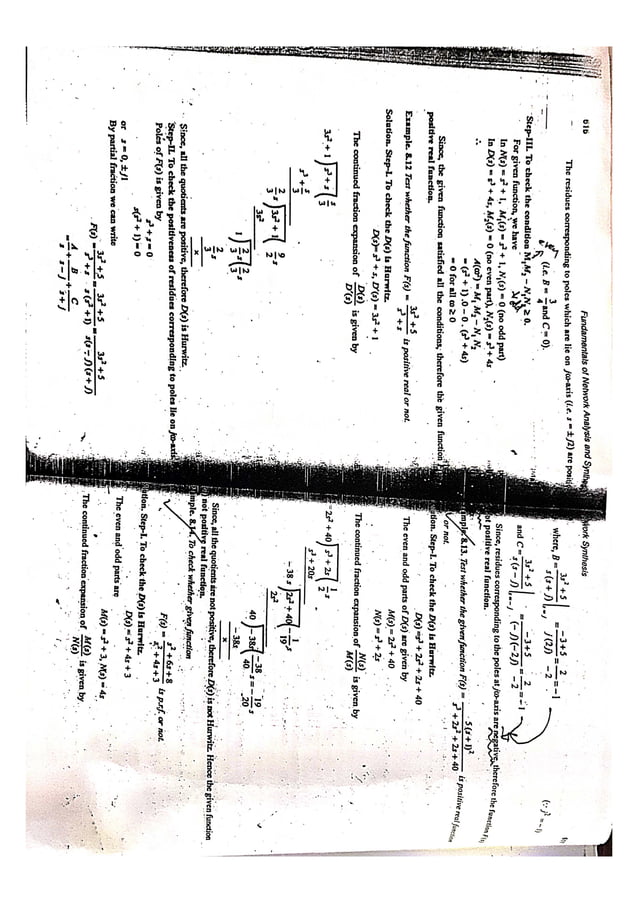 616 Fundamentals of Network Analysis and Synthesis
The residues corresponding to poles which are lie on jω-axis (i.e. s = ± j2) are
(i.e. B = 3/4 and C = 0).
Step-III. To check the condition M₁M₂ – N₁N₂ ≥ 0.
For given function, we have
In N(s) = s² + 1, M₁(s) = s² + 1, N₁(s) = 0 (no odd part)
In D(s) = s³ + 4s, M₂(s) = 0 (no even part), N₂(s) = s³ + 4s
∴ A(ω²) = M₁ M₂ – N₁ N₂
= (s² + 1) . 0 – 0 . (s³ + 4s)
= 0 for all ω ≥ 0
Since, the given function satisfied all the conditions, therefore the given function
positive real function.
Example. 8.12 Test whether the function F(s) = (3s² + 5)/(s³ + s) is positive real or not.
Solution. Step-I. To check the D(s) is Hurwitz.
D(s) = s³ + s, D'(s) = 3s² + 1
The continued fraction expansion of D(s)/D'(s) is given by
3s² + 1 ) s³ + s ( s/3
s³ + s/3
2/3 s ) 3s² + 1 ( 9/2 s
3s²
1 ) 2/3 s ( 2/3 s
2/3 s
x
Since, all the quotients are positive, therefore D(s) is Hurwitz.
Step-II. To check the positiveness of residues corresponding to poles lie on jω-axis
Poles of F(s) is given by
s³ + s = 0
s(s² + 1) = 0
or s = 0, ± j1
By partial fraction we can write
F(s) = (3s² + 5)/(s³ + s) = (3s² + 5)/(s(s² + 1)) = (3s² + 5)/(s(s – j)(s + j))
= A/s + B/(s – j) + C/(s + j)
work Synthesis
where, B = (3s² + 5)/(s(s + j)) | = (–3 + 5)/(j(2j)) = 2/–2 = –1 (∵ j² = –1)
and C = (3s² + 5)/(s(s – j)) |s = –j = (–3 + 5)/((–j)(–2j)) = 2/–2 = –1
Since, residues corresponding to the poles at jω-axis are negative, therefore the function
not positive real function.
8.13. Test whether the given function F(s) = 5(s + 1)²/(s³ + 2s² + 2s + 40) is positive real function
or not.
Step-I. To check the D(s) is Hurwitz.
D(s) = s³ + 2s² + 2s + 40
The even and odd parts of D(s) are given by
M(s) = 2s² + 40
N(s) = s³ + 2s
The continued fraction expansion of N(s)/M(s) is given by
2s² + 40 ) s³ + 2s ( 1/2 s
s³ + 20s
– 38 s ) 2s² + 40 ( – 1/19 s
2s²
40 ) –38s ( –38/40 s = – 19/20 s
–38s
x
Since, all the quotients are not positive, therefore D(s) is not Hurwitz. Hence the given function
not positive real function.
8.14. To check whether given function
F(s) = (s² + 6s + 8)/(s² + 4s + 3) is p.r.f. or not.
Step-I. To check the D(s) is Hurwitz.
D(s) = s² + 4s + 3
The even and odd parts are
M(s) = s² + 3, N(s) = 4s
The continued fraction expansion of M(s)/N(s) is given by